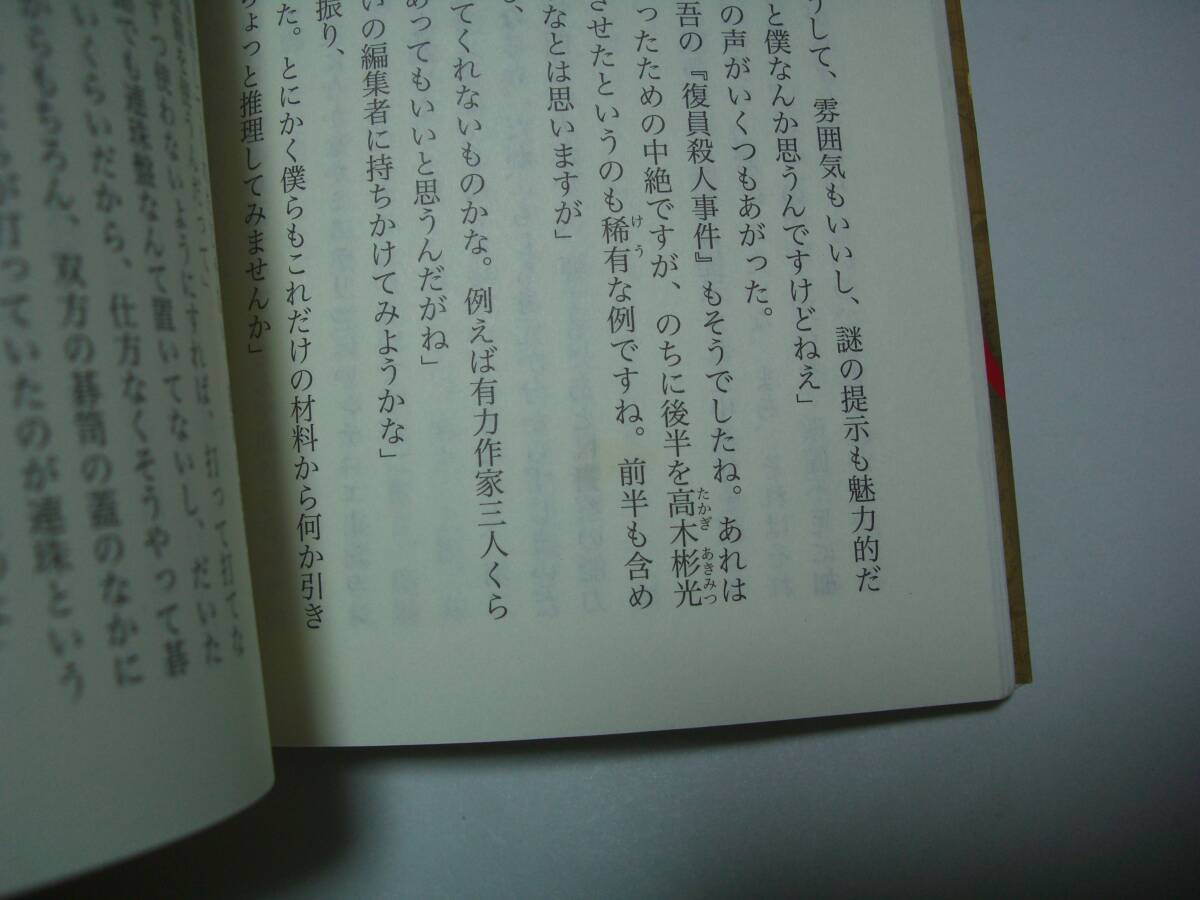 うして、雰囲気もいいし、謎の提示も魅力的だ
と僕なんか思うんですけどねえ」
の声がいくつもあがった。
吾の『復員殺人事件』もそうでしたね。あれは
ったための中絶ですが、のちに後半を高木彬光
たかぎ あきみつ
させたというのも稀有な例ですね。前半も含め
けう
なとは思いますが」
、
てくれないものかな。例えば有力作家三人くら
あってもいいと思うんだがね」
いの編集者に持ちかけてみようかな」
振り、
た。とにかく僕らもこれだけの材料から何か引き
ょっと推理してみませんか」
ずつ使わないようにすれば、打って打てな
でも連珠盤なんて置いてないし、だいた
いくらいだから、仕方なくそうやって碁
からもちろん、双方の碁笥の蓋のなかに
が打っていたのが連珠という